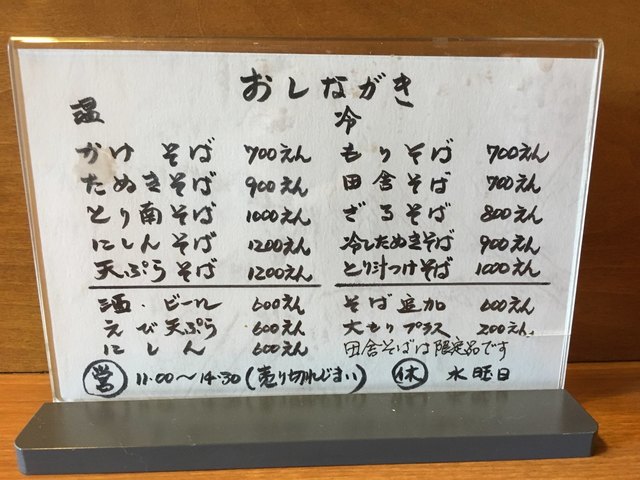 おしながき
温
かけそば 700えん
たぬきそば 900えん
とり南そば 1000えん
にしんそば 1200えん
天ぷらそば 1200えん
酒・ビール 600えん
えび天ぷら 600えん
にしん 600えん
冷
もりそば 700えん
田舎そば 700えん
ざるそば 800えん
冷したぬきそば 900えん
とり汁つけそば 1000えん
そば追加 600えん
大もりプラス 200えん
田舎そばは限定品です
営 11:00〜14:30(売り切れじまい)
休 水曜日